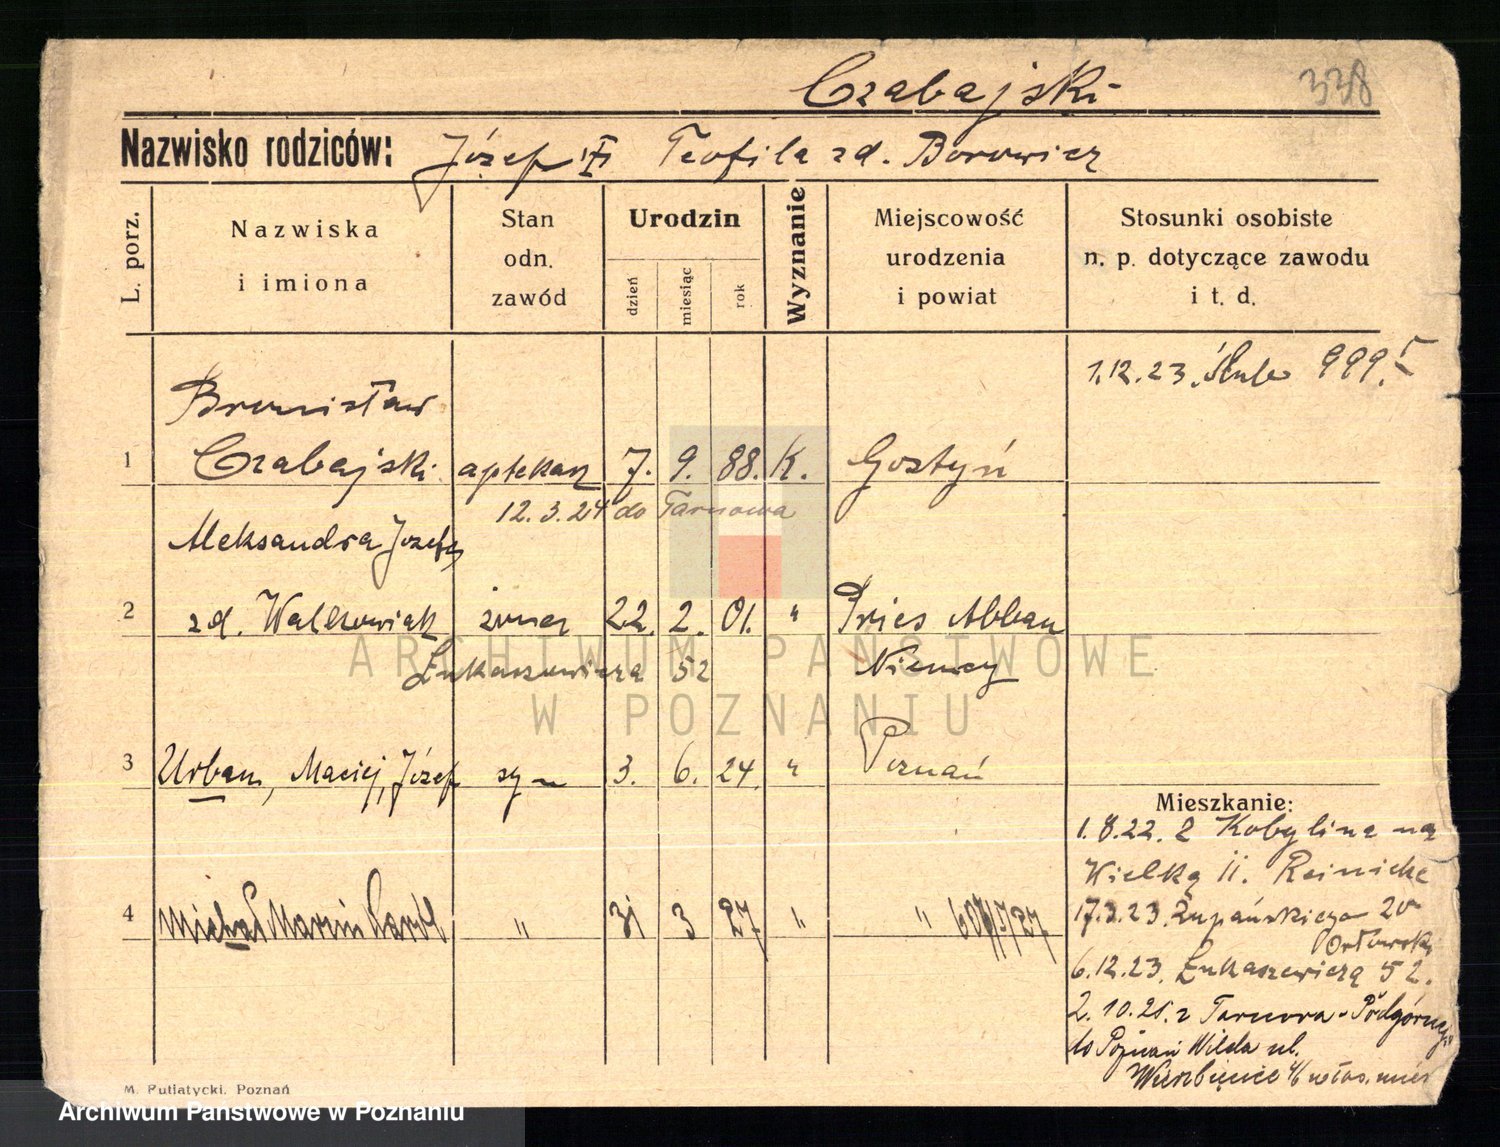 Czabajski
338
Nazwisko rodziców: Józef i Teofila zd. Borowicz
L. porz.
Nazwiska
i imiona
Stan
odn.
zawód
Urodzin
dzień
miesiąc
rok
Wyznanie
Miejscowość
urodzenia
i powiat
Stosunki osobiste
n. p. dotyczące zawodu
i t. d.
1.12.23. Ślub 999.
Bronisław
1 Czabajski aptekarz 7. 9. 88. K. Gostyń
12.3.24 do Tarnowa
Aleksandra Józefa
2 zd. Walkowiak żona 22. 2. 01. " Pries Abbau
Łukaszewicza 52 Niemcy
3 Urban, Maciej, Józef syn 3. 6. 24. " Poznań
Mieszkanie:
1.8.22. z Kobylina na
Wielką 11. Reinicke
4 Michał Marcin Karol " 31 3 27 " "
17.3.23. Żupańskiego 20
Orłowski
6.12.23. Łukaszewicza 52.
2.10.25. z Tarnowa-Podgórnego
do Poznań Wilda ul.
Wierzbięcice
M. Putiatycki, Poznań
ARCHIWUM PAŃSTWOWE
W POZNANIU
Archiwum Państwowe w Poznaniu